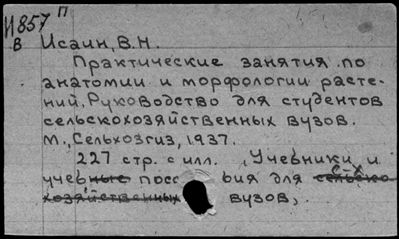 И857 П
В Исаин, В.Н.
Практические занятия по
анатомии и морфологии расте-
ний. Руководство для студентов
сельскохозяйственных вузов.
М., Сельхозгиз, 1937.
227 стр. с илл. (Учебники и
учебные посо бия для сельско
хозяйственных вузов,